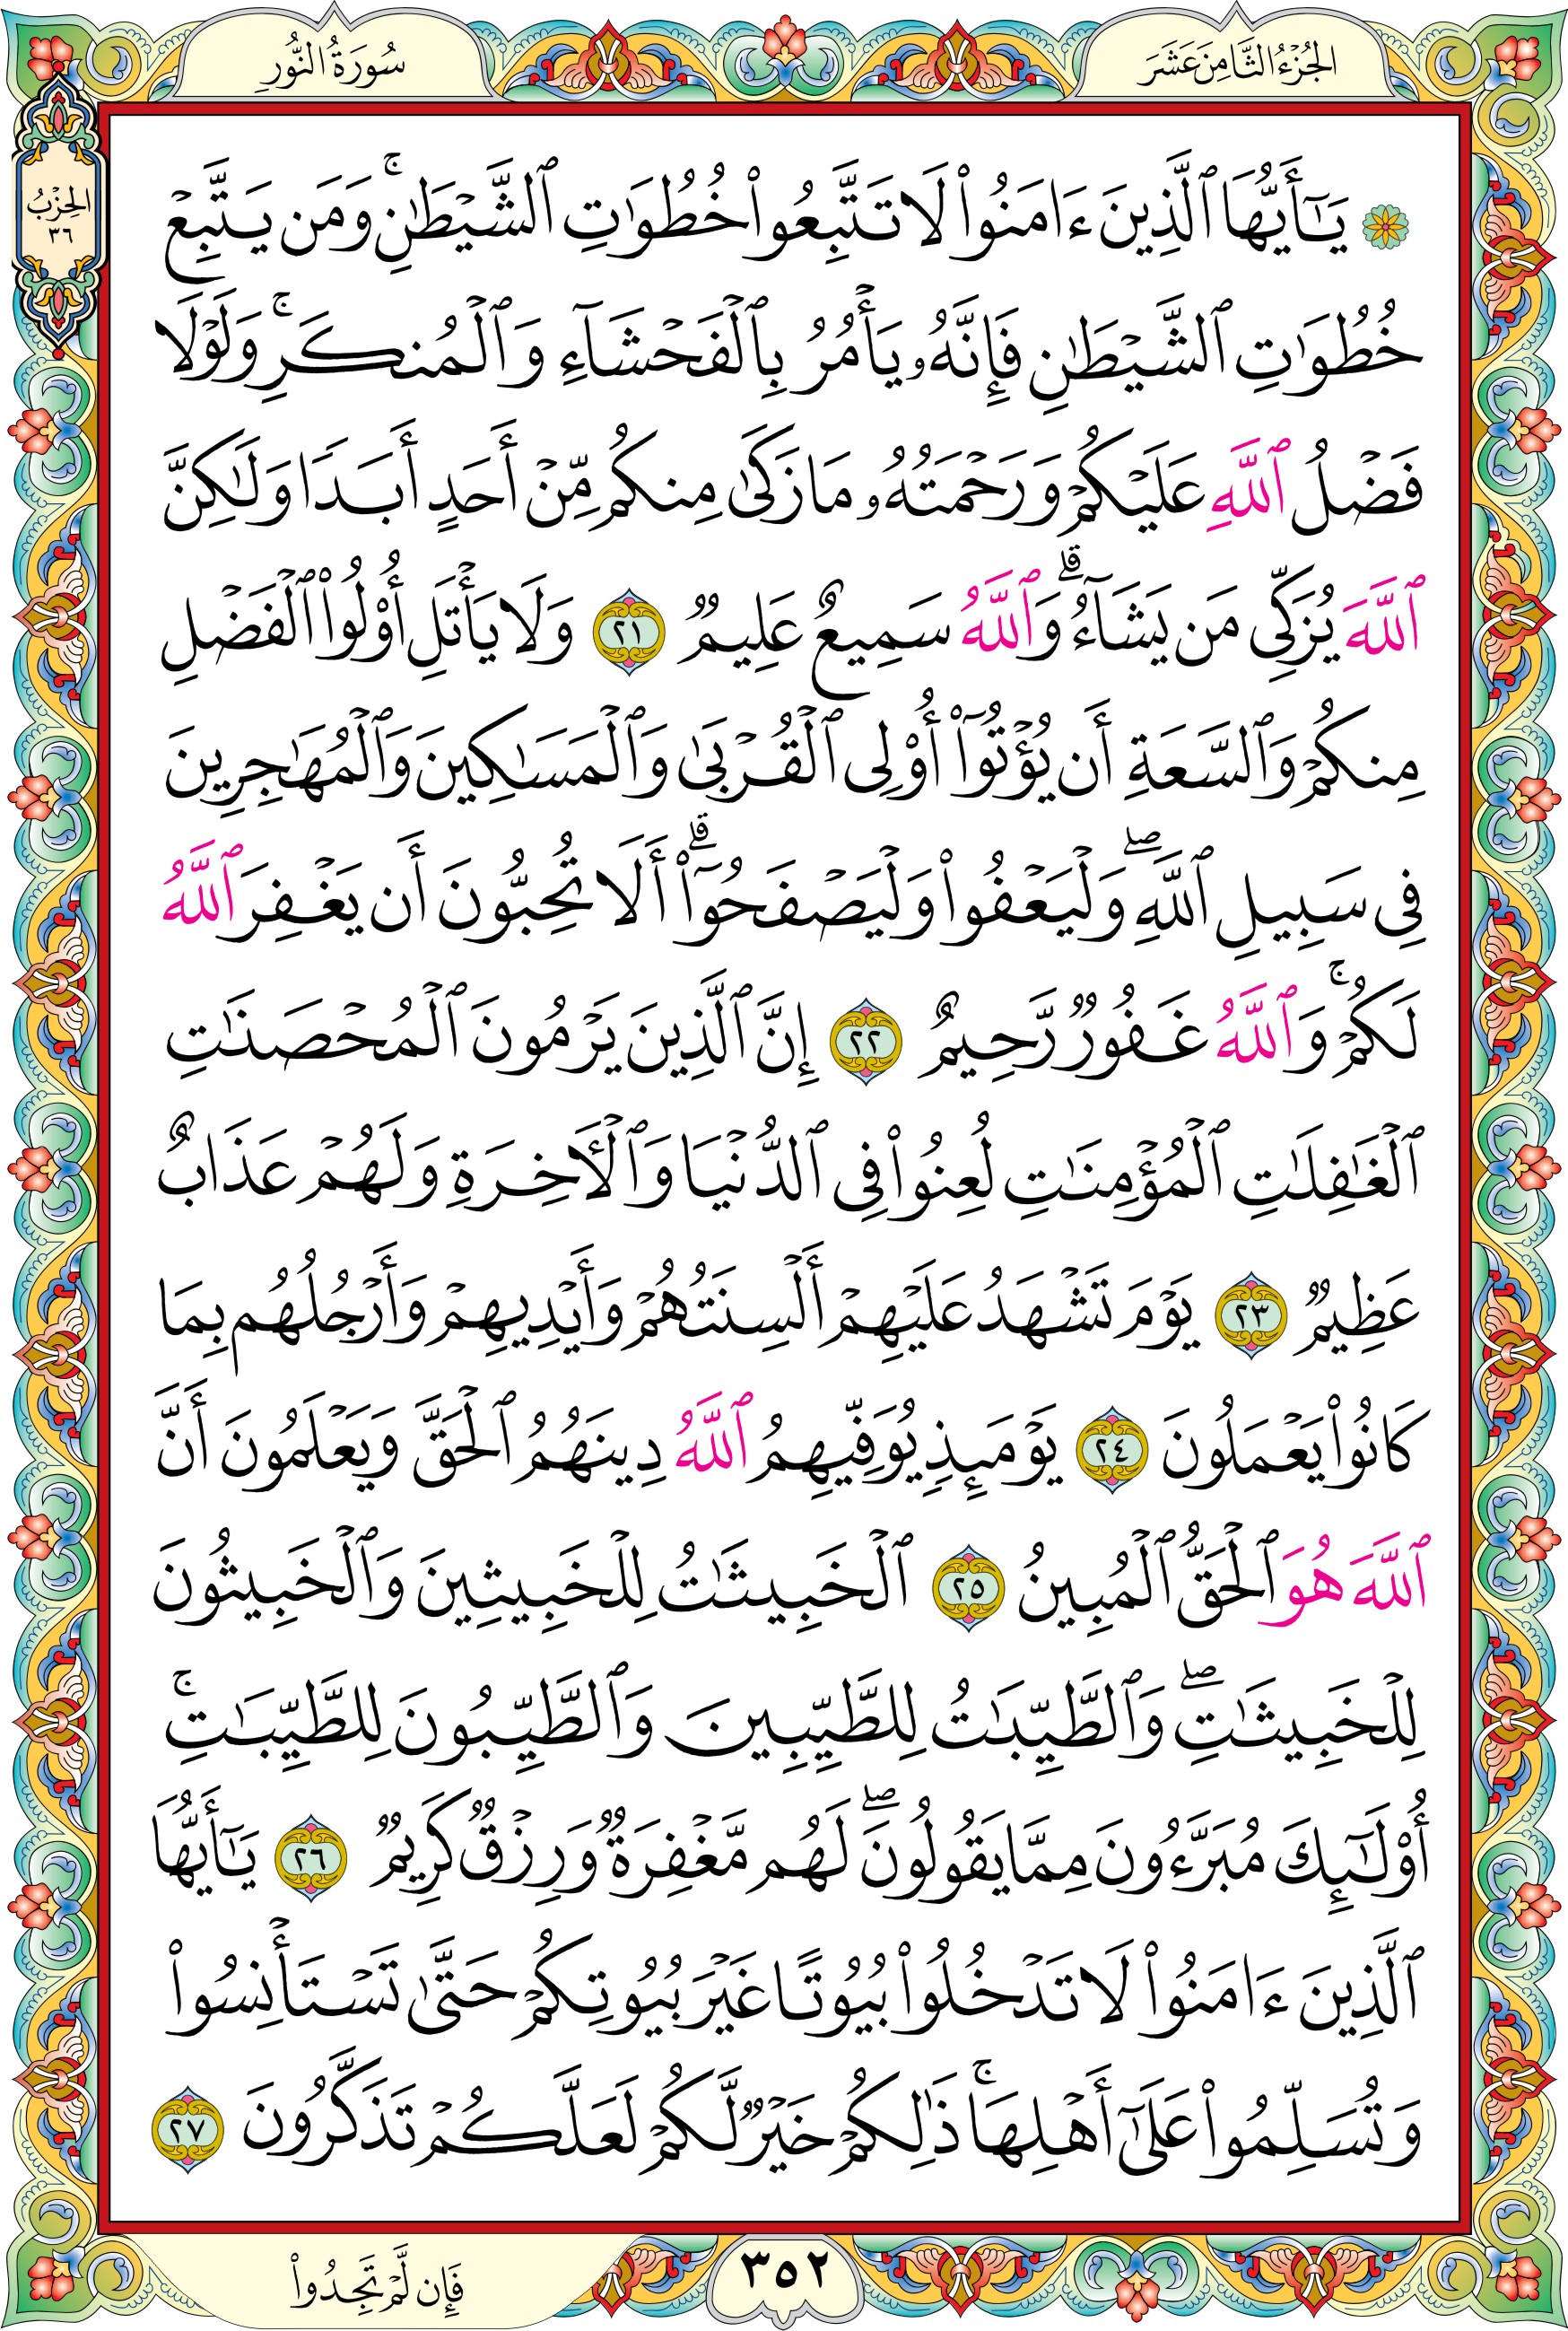 الجُزْءُ الثَّامِنَ عَشَرَ
سُورَةُ النُّورِ
الحِزْبُ
٣٦
يَٰٓأَيُّهَا ٱلَّذِينَ ءَامَنُوا۟ لَا تَتَّبِعُوا۟ خُطُوَٰتِ ٱلشَّيْطَٰنِۚ وَمَن يَتَّبِعْ
خُطُوَٰتِ ٱلشَّيْطَٰنِ فَإِنَّهُۥ يَأْمُرُ بِٱلْفَحْشَآءِ وَٱلْمُنكَرِۚ وَلَوْلَا
فَضْلُ ٱللَّهِ عَلَيْكُمْ وَرَحْمَتُهُۥ مَا زَكَىٰ مِنكُم مِّنْ أَحَدٍ أَبَدًا وَلَٰكِنَّ
ٱللَّهَ يُزَكِّى مَن يَشَآءُۗ وَٱللَّهُ سَمِيعٌ عَلِيمٌ ٢١ وَلَا يَأْتَلِ أُو۟لُوا۟ ٱلْفَضْلِ
مِنكُمْ وَٱلسَّعَةِ أَن يُؤْتُوٓا۟ أُو۟لِى ٱلْقُرْبَىٰ وَٱلْمَسَٰكِينَ وَٱلْمُهَٰجِرِينَ
فِى سَبِيلِ ٱللَّهِۖ وَلْيَعْفُوا۟ وَلْيَصْفَحُوٓا۟ۗ أَلَا تُحِبُّونَ أَن يَغْفِرَ ٱللَّهُ
لَكُمْۚ وَٱللَّهُ غَفُورٌ رَّحِيمٌ ٢٢ إِنَّ ٱلَّذِينَ يَرْمُونَ ٱلْمُحْصَنَٰتِ
ٱلْغَٰفِلَٰتِ ٱلْمُؤْمِنَٰتِ لُعِنُوا۟ فِى ٱلدُّنْيَا وَٱلْءَاخِرَةِ وَلَهُمْ عَذَابٌ
عَظِيمٌ ٢٣ يَوْمَ تَشْهَدُ عَلَيْهِمْ أَلْسِنَتُهُمْ وَأَيْدِيهِمْ وَأَرْجُلُهُم بِمَا
كَانُوا۟ يَعْمَلُونَ ٢٤ يَوْمَئِذٍ يُوَفِّيهِمُ ٱللَّهُ دِينَهُمُ ٱلْحَقَّ وَيَعْلَمُونَ أَنَّ
ٱللَّهَ هُوَ ٱلْحَقُّ ٱلْمُبِينُ ٢٥ ٱلْخَبِيثَٰتُ لِلْخَبِيثِينَ وَٱلْخَبِيثُونَ
لِلْخَبِيثَٰتِۖ وَٱلطَّيِّبَٰتُ لِلطَّيِّبِينَ وَٱلطَّيِّبُونَ لِلطَّيِّبَٰتِۚ
أُو۟لَٰٓئِكَ مُبَرَّءُونَ مِمَّا يَقُولُونَۖ لَهُم مَّغْفِرَةٌ وَرِزْقٌ كَرِيمٌ ٢٦ يَٰٓأَيُّهَا
ٱلَّذِينَ ءَامَنُوا۟ لَا تَدْخُلُوا۟ بُيُوتًا غَيْرَ بُيُوتِكُمْ حَتَّىٰ تَسْتَأْنِسُوا۟
وَتُسَلِّمُوا۟ عَلَىٰٓ أَهْلِهَاۚ ذَٰلِكُمْ خَيْرٌ لَّكُمْ لَعَلَّكُمْ تَذَكَّرُونَ ٢٧
٣٥٢
فَإِن لَّمْ تَجِدُوا۟